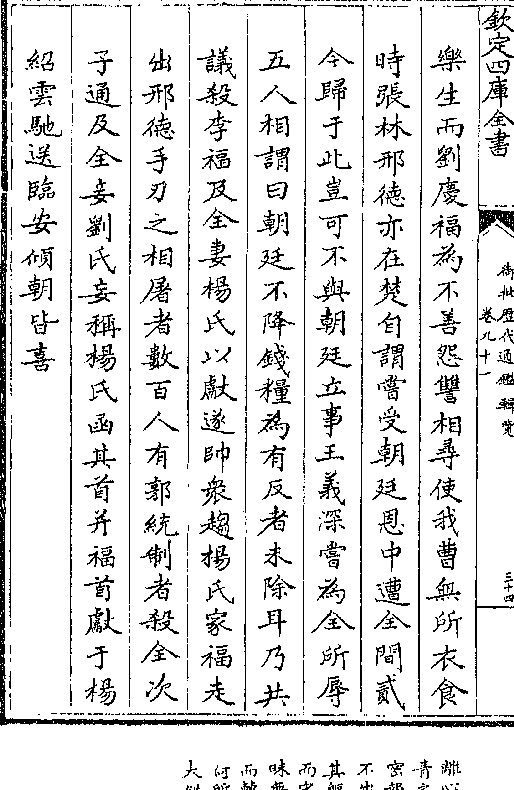 欽定四庫全書
御批歷代通鑑輯覽
卷九十一
三十四
樂生而劉慶福為不善怨讐相尋使我曹無所衣食
時張林邢德亦在楚自謂嘗受朝廷恩中遭全間貳
今歸于此豈可不與朝廷立事王義深嘗為全所辱
五人相謂曰朝廷不降錢糧為有反者未除耳乃共
議殺李福及全妻楊氏以獻遂帥衆趨楊氏家福走
出邢德手刃之相屠者數百人有郭統制者殺全次
子通及全妾劉氏妄稱楊氏函其首并福首獻于楊
紹雲馳送臨安傾朝皆喜